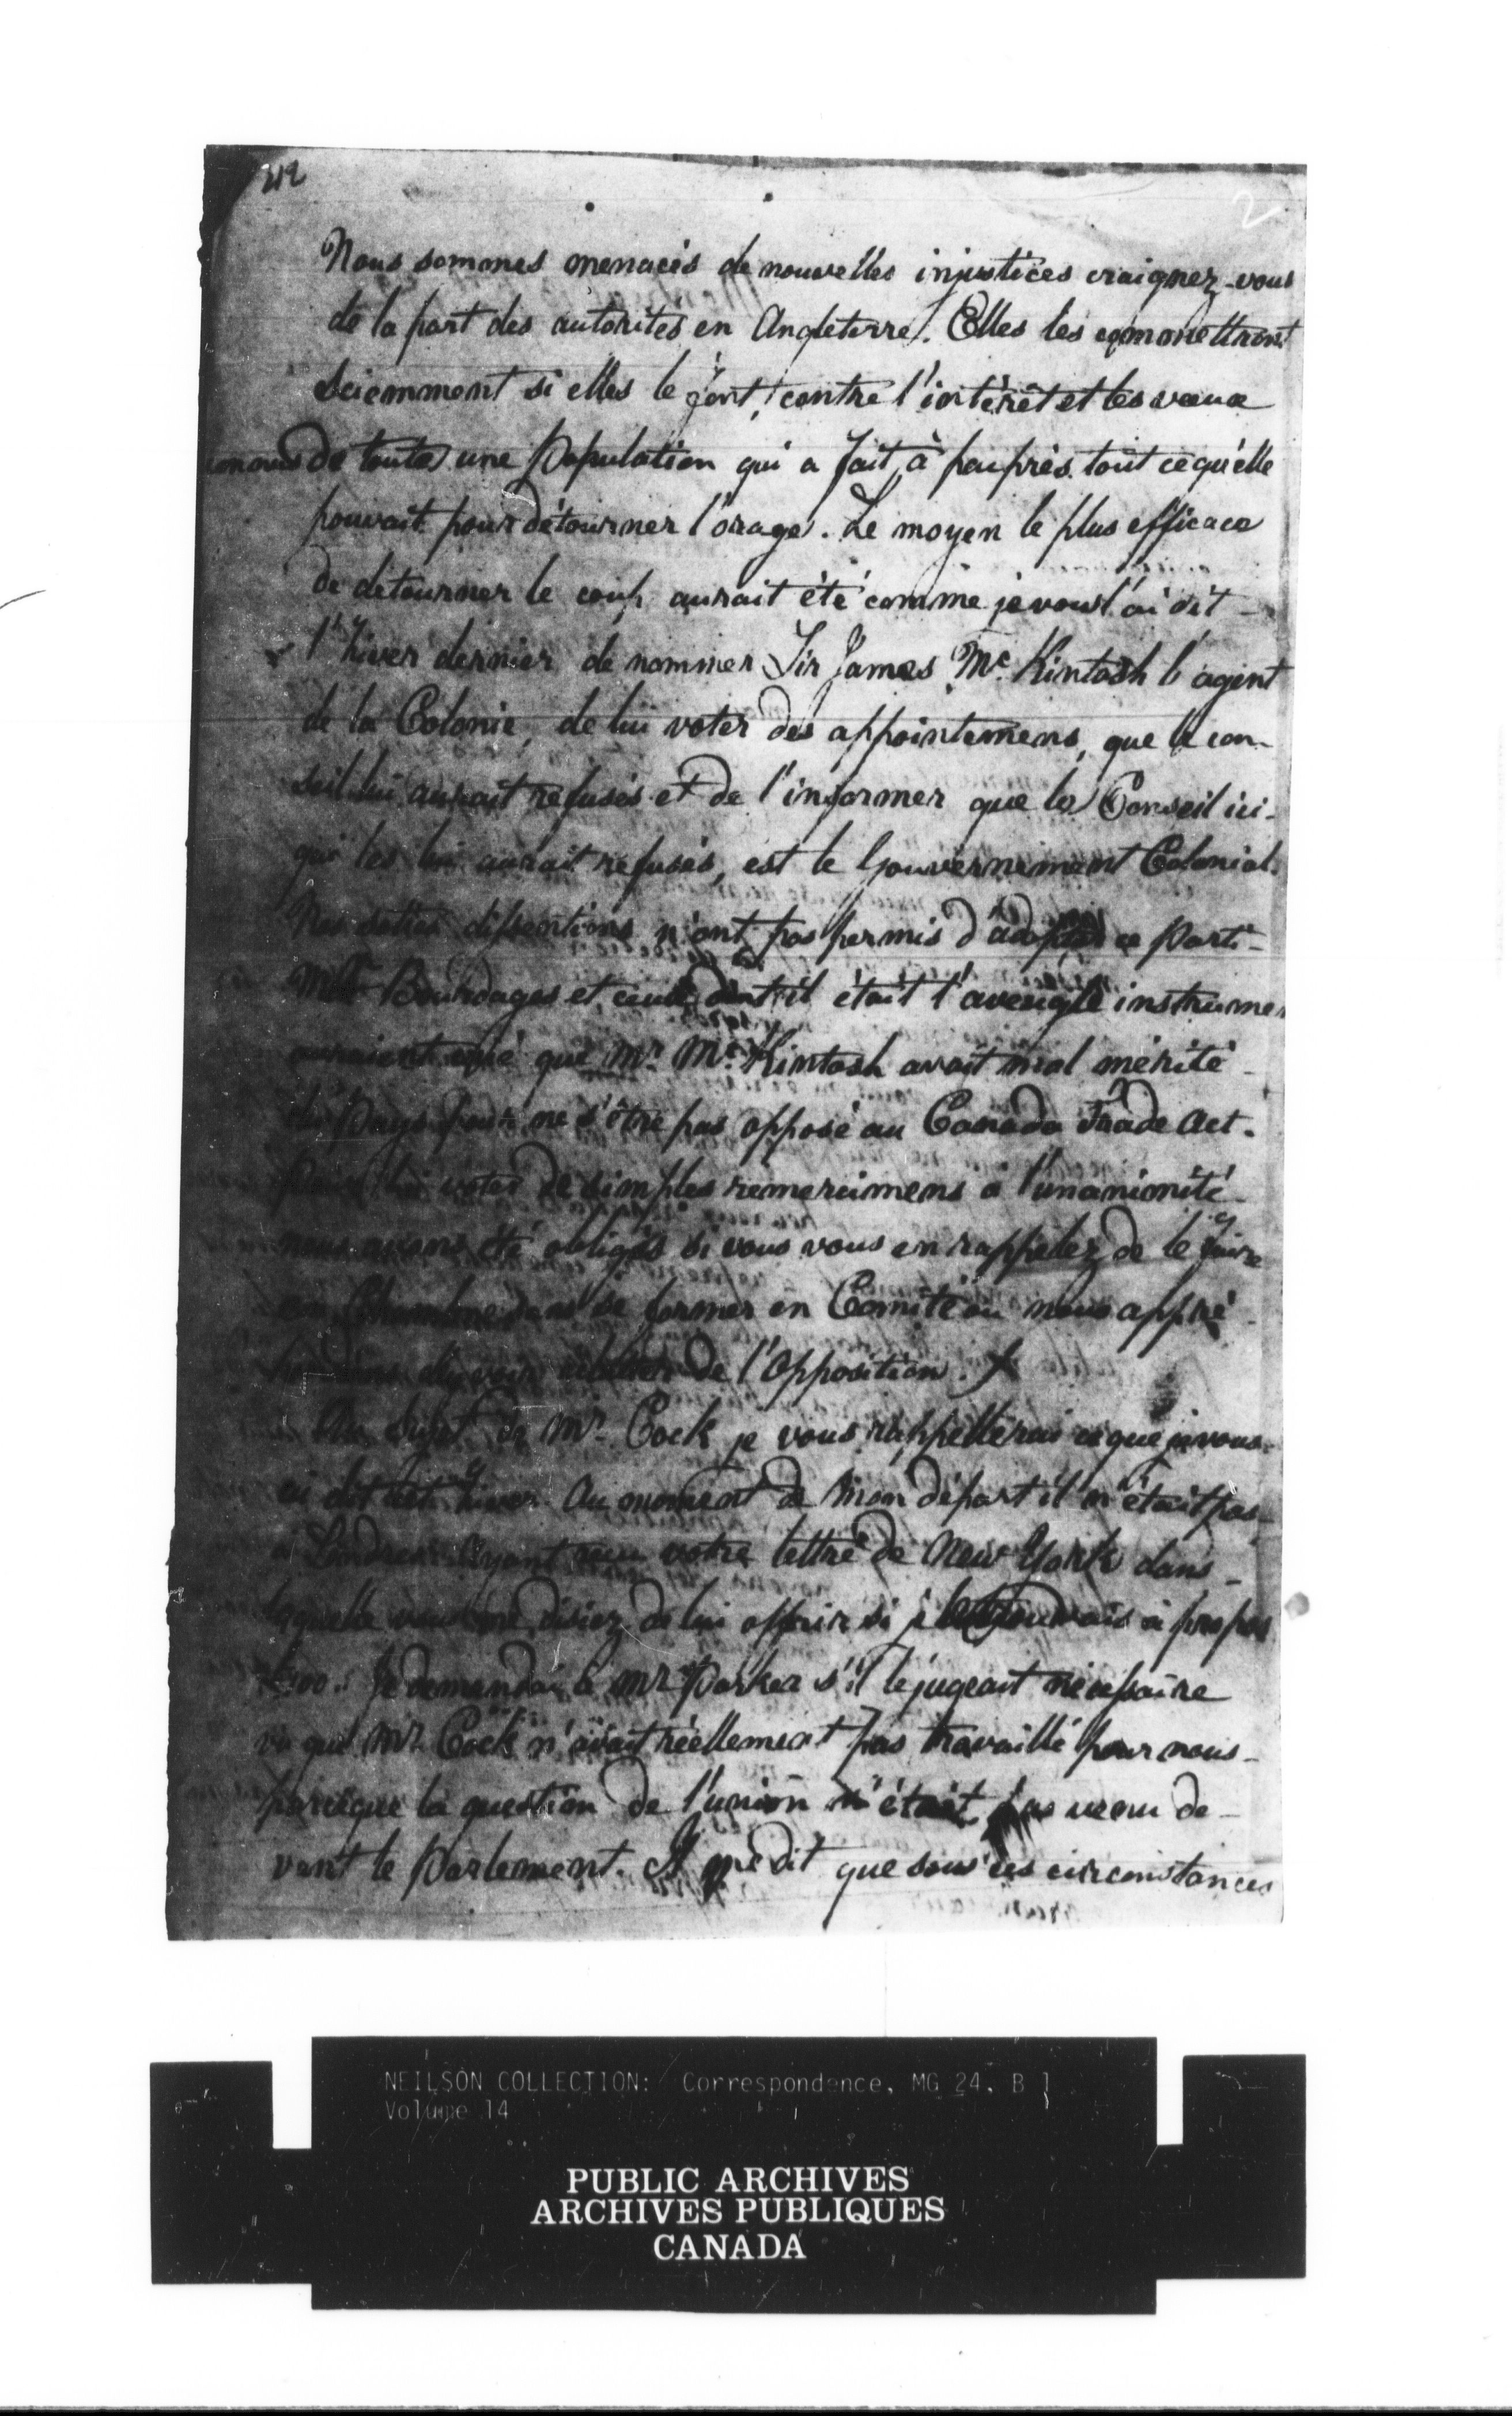 212
2
Nous sommes menacés de nouvelles injustices craignez-vous
de la part des autorités en Angleterre. Elles les commettront
sciemment si elles le font, contre l'intérêt et les vœux
connus de toute une Population qui a fait à peuprès tout cequ'elle
pouvait pour détourner l'orage. Le moyen le plus efficace
de détourner le coup aurait été comme je vous l'ai dit
l'hiver dernier de nommer Sir James Mc Kintosh l'agent
de la Colonie, de lui voter des appointemens, que le con-
seil lui aurait refusés et de l'informer que le Conseil ici
qui les lui aurait refusés, est le Gouvernement Colonial.
Nos sottes dissentions n'ont pas permis d'adopter ce Parti-
Bourdages et ceux dont il était l'aveugle instrumen
auraient crié que Mr. Mc Kintosh avait mal mérité
du Pays pour ne s'être pas opposé au Canada Trade Act.
Pour lui voter de simples remercimens a l'unanimité
nous avons été obligés si vous vous en rappelez de le faire
en Chambre sans se former en Comité ou nous appré
de l'Opposition. X
Au Sujet de Mr. Cock je vous rappellerai ce que je vous
ai dit cet hiver. Au moment de mon départ il n'était pas
à Londres. Ayant reçu votre lettre de New York dans
laquelle vous me disiez de lui offrir si je à propos
Je demandai à Mr Parker s'il le jugeait nécessaire
vu que Mr Cock n'avait réellement pas travaillé pour nous
parceque la question de l'union n'était pas venu de-
vant le Parlement. Il me dit que sous ces circonstances
NEILSON COLLECTION: Correspondence, MG 24, B 1
Volume 14
PUBLIC ARCHIVES
ARCHIVES PUBLIQUES
CANADA